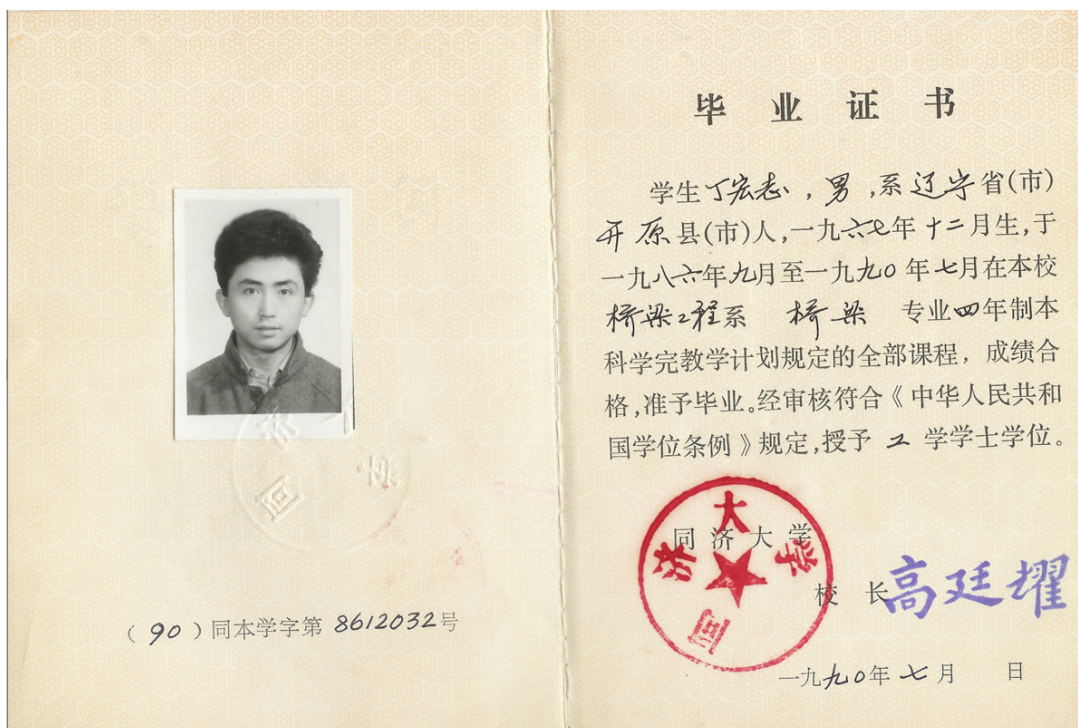 毕业证书
学生丁宏志，男，系辽宁省(市)
开原县(市)人，一九六七年十二月生，于
一九八六年九月至一九九〇年七月在本校
桥梁工程系 桥梁 专业四年制本
科学完教学计划规定的全部课程，成绩合
格，准予毕业。经审核符合《中华人民共和
国学位条例》规定，授予 工 学学士学位。
同济大学
同济大学
校长 高廷耀
一九九〇年七月 日
(90)同本学字第 8612032号